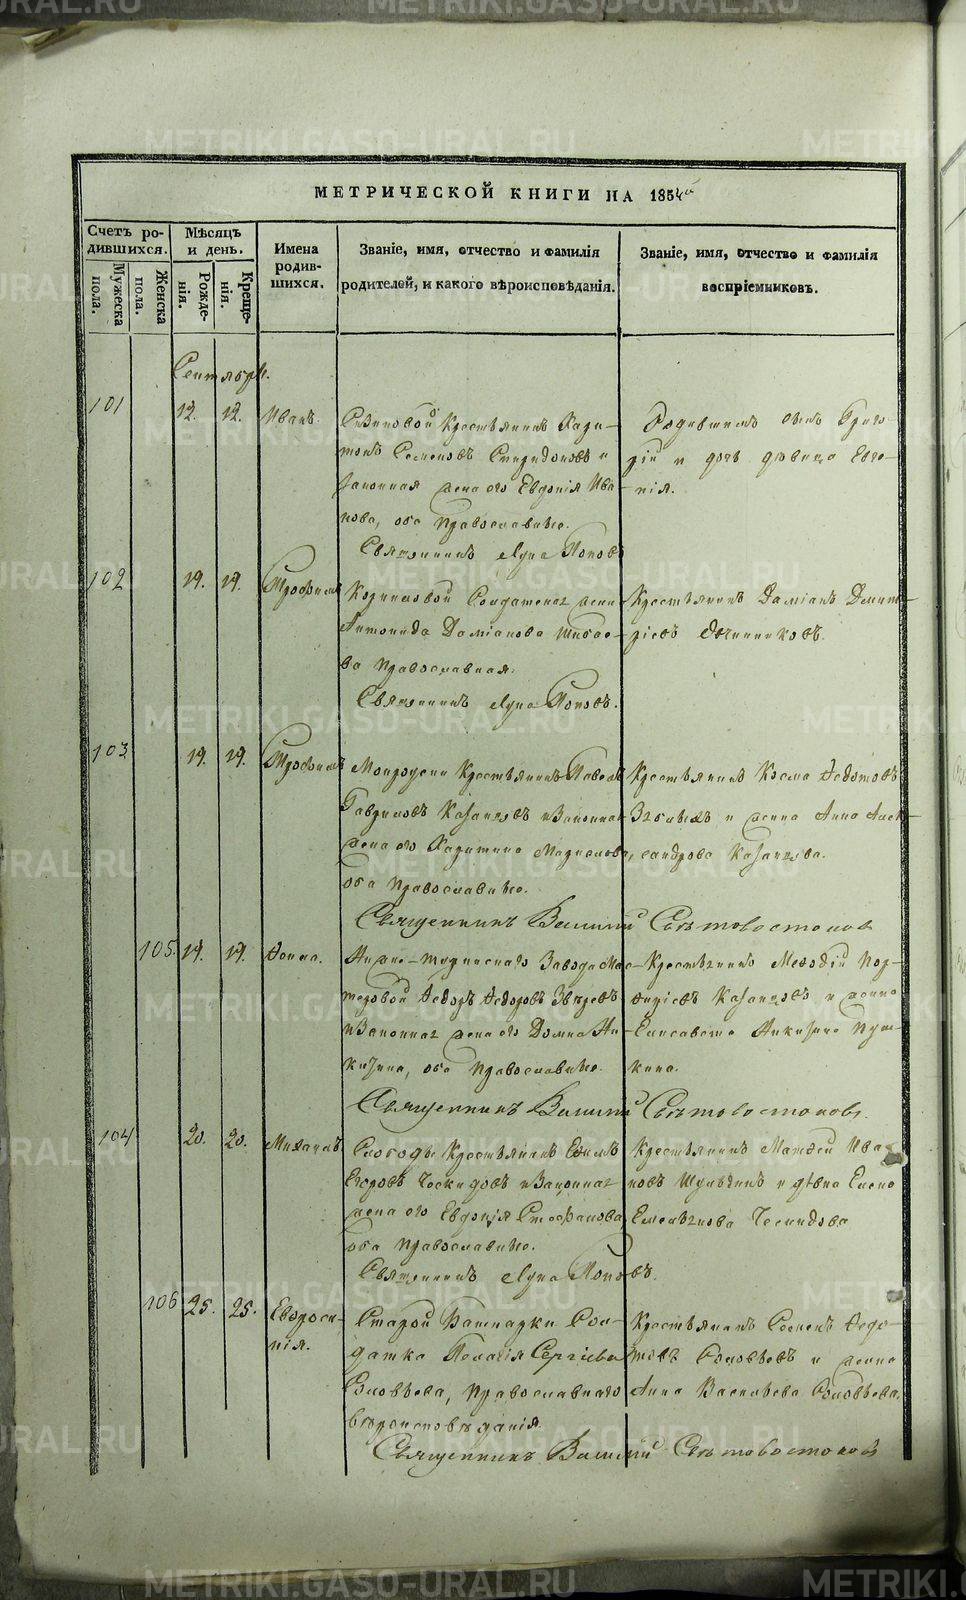 МЕТРИЧЕСКОЙ КНИГИ НА 1854й
Счетъ ро-
дившихся.
Мужеска
пола.
Женска
пола.
Мѣсяцъ
и день.
Рожде-
нія.
Креще-
нія.
Имена
родив-
шихся.
Званіе, имя, отчество и фамилія
родителей, и какого вѣроисповѣданія.
Званіе, имя, отчество и фамилія
воспріемниковъ.
Сентябрь.
101 12. 12. Иванъ. Крестьянинъ Хари-
тонъ Семеновъ Спиридоновъ и
законная жена его Евдокія Ива-
нова, оба Православные.
Священникъ Лука Поповъ
Родившагося сынъ Григо-
рій и дочь дѣвица Евге-
нія.
102 19. 19. Трофимъ Солдатская жена
Антонида Даміанова
ва Православная.
Священникъ Лука Поповъ.
Крестьянинъ Даміанъ Димит-
ріевъ Овчинниковъ.
103 19. 19. Трофимъ Крестьянинъ Павелъ
Гавриловъ Казанцовъ и Законная
жена его Харитина
оба Православные.
Священникъ Василій Свѣтовостоковъ
Крестьянинъ Косма Федотовъ
и жена Анна Алек-
сандрова Казанцова.
105. 19. 19. Фекла. Нижне-
Завода Мас-
теровой Федоръ Федоровъ Звѣревъ
и Законная жена его Домна Ни-
китина, оба Православные.
Священникъ Василій Свѣтовостоковъ.
Крестьянинъ Мефодій Пор-
фирьевъ Казанцовъ и жена
Елисавета Никитина
104 20. 20. Михаилъ Слободы Крестьянинъ Ефимъ
Егоровъ Ческидовъ и Законная
жена его Евдокія Стефанова
оба Православные.
Священникъ Лука Поповъ.
Крестьянинъ Матвей Ива-
новъ и дѣвка Елена
Емельянова Ческидова
106 25. 25. Евфроси-
нія.
Старой Башкарки Сол-
датка Пелагія Сергіева
Соловьева, Православнаго
вѣроисповѣданія.
Священникъ Василій Свѣтовостоковъ
Крестьянинъ Семенъ Федо-
товъ Соловьевъ и жена
Анна Васильева Соловьева.
METRIKI.GASO-URAL.RU